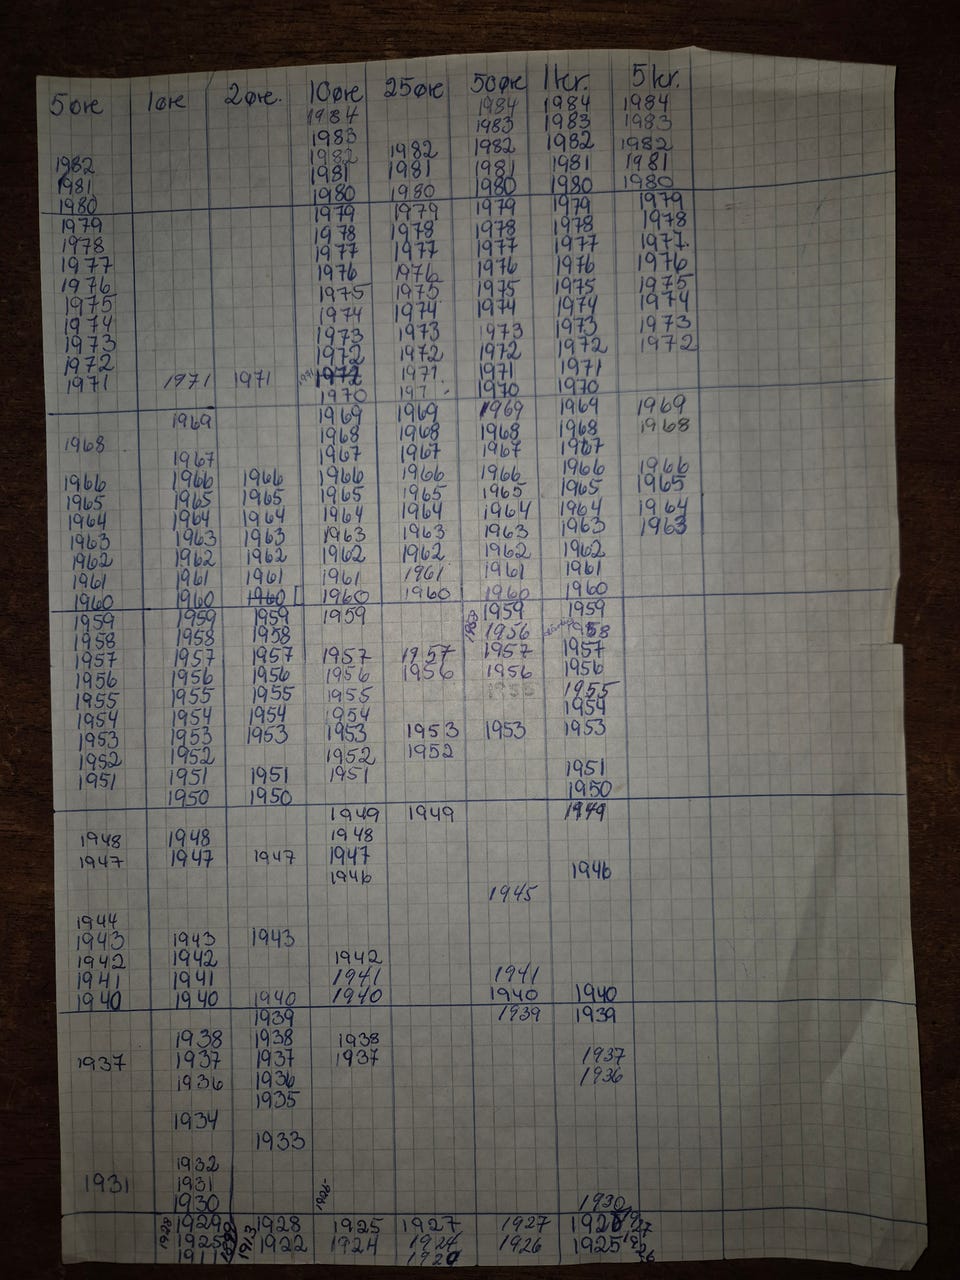 5øre 1øre 2øre. 10øre 25øre 50øre 1kr. 5kr.
1984 1984 1984 1984
1983 1983 1983 1983
1982 1982 1982 1982 1982 1982
1981 1981 1981 1981 1981 1981
1980 1980 1980 1980 1980 1980
1979 1979 1979 1979 1979 1979
1978 1978 1978 1978 1978 1978
1977 1977 1977 1977 1977 1977.
1976 1976 1976 1976 1976 1976
1975 1975 1975 1975 1975 1975
1974 1974 1974 1974 1974 1974
1973 1973 1973 1973 1973 1973
1972 1972 1972 1972 1972 1972
1971 1971 1971 1971 1972 1971 1971 1971
1970 197 1970 1970
1969 1969 1969 1969 1969 1969
1968 1968 1968 1968 1968 1968
1967 1967 1967 1967 1967
1966 1966 1966 1966 1966 1966 1966 1966
1965 1965 1965 1965 1965 1965 1965 1965
1964 1964 1964 1964 1964 1964 1964 1964
1963 1963 1963 1963 1963 1963 1963 1963
1962 1962 1962 1962 1962 1962 1962
1961 1961 1961 1961 1961 1961 1961
1960 1960 1960 1960 1960 1960 1960
1959 1959 1959 1959 1959 1959
1958 1958 1958 1956 1958
1957 1957 1957 1957 1957 1957 1957
1956 1956 1956 1956 1956 1956 1956
1955 1955 1955 1955 1955 1955
1954 1954 1954 1954 1954
1953 1953 1953 1953 1953 1953 1953
1952 1952 1952 1952
1951 1951 1951 1951 1951
1950 1950 1950
1949 1949 1949
1948 1948 1948
1947 1947 1947 1947
1946 1946
1945
1944
1943 1943 1943
1942 1942 1942
1941 1941 1941 1941
1940 1940 1940 1940 1940 1940
1939 1939 1939
1938 1938 1938
1937 1937 1937 1937 1937
1936 1936 1936
1935
1934
1933
1932
1931 1931
1930 1926 1930
1928 1929 1928 1925 1927 1927
1925 1913 1922 1924 1924 1926 1925
1920